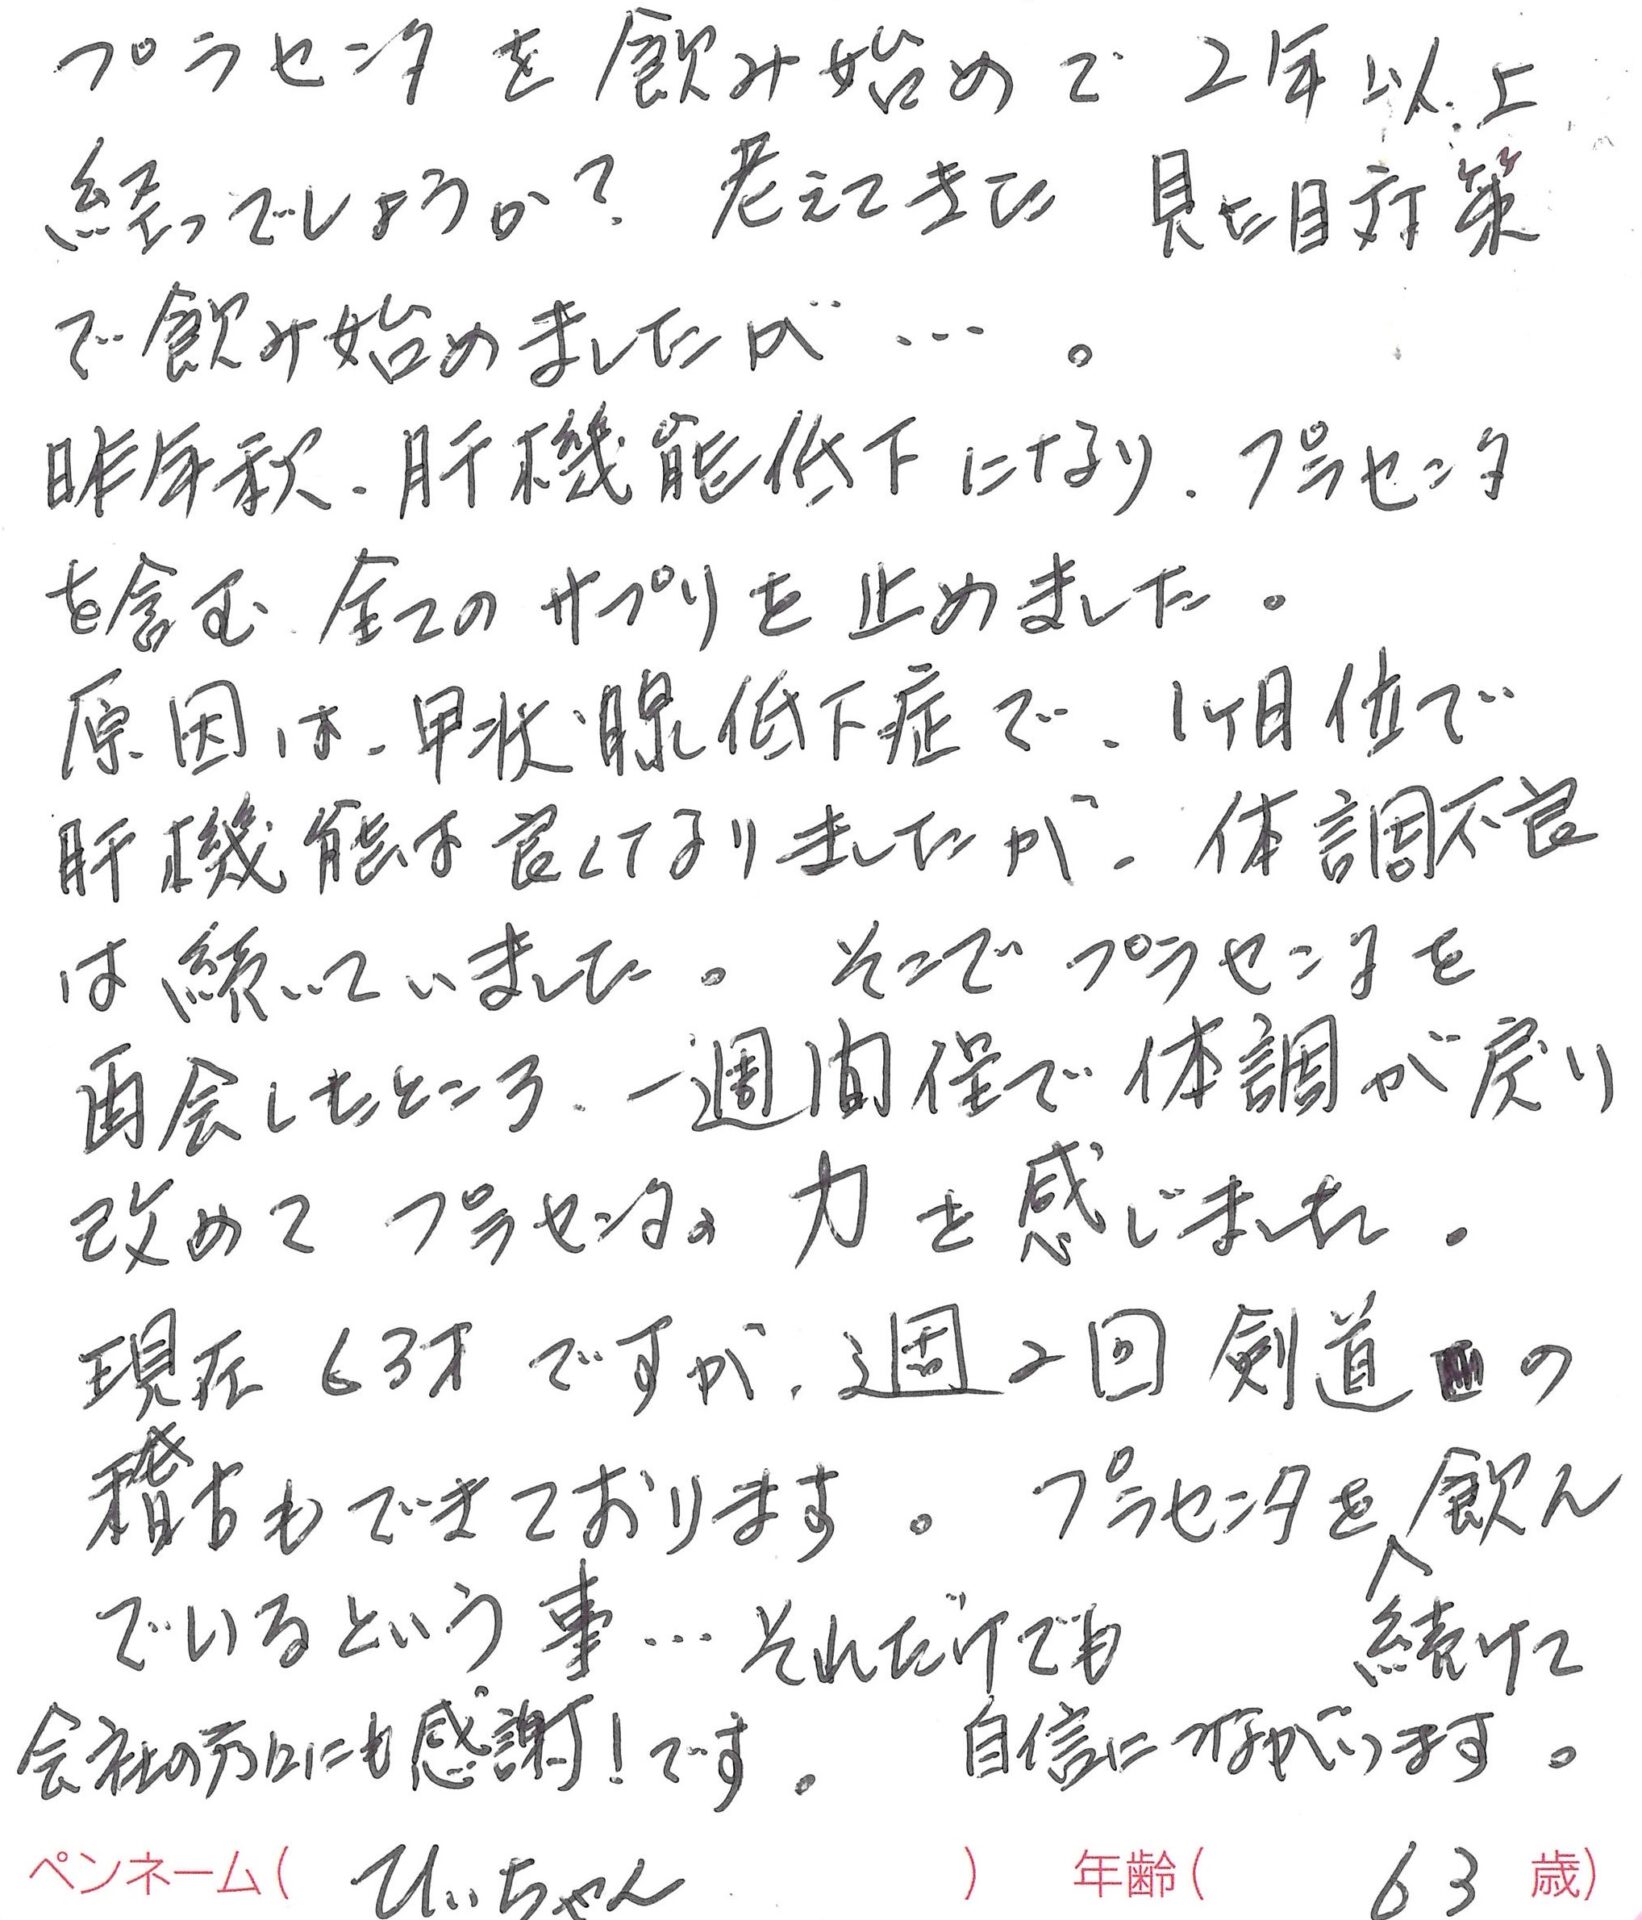 プラセンタを飲み始めで2年以上
経つでしょうか? 老えてきた 見た目対策
で飲み始めましたが…。
昨年秋、肝機能低下になり、プラセンタ
を含む 全てのサプリを止めました。
原因は、甲状腺低下症で、1ヶ月位で
肝機能は良くなりましたが、体調不良
は続いていました。そこでプラセンタを
再会したところ、一週間程で体調が戻り
改めて プラセンタの力を感じました。
現在63才ですが、週2回剣道の
稽古もできております。プラセンタを飲ん
でいるという事…それだけでも 続けて
会社の方にも感謝!です。 自信につながります。
ペンネーム( ひぃちゃん ) 年齢( 63 歳)